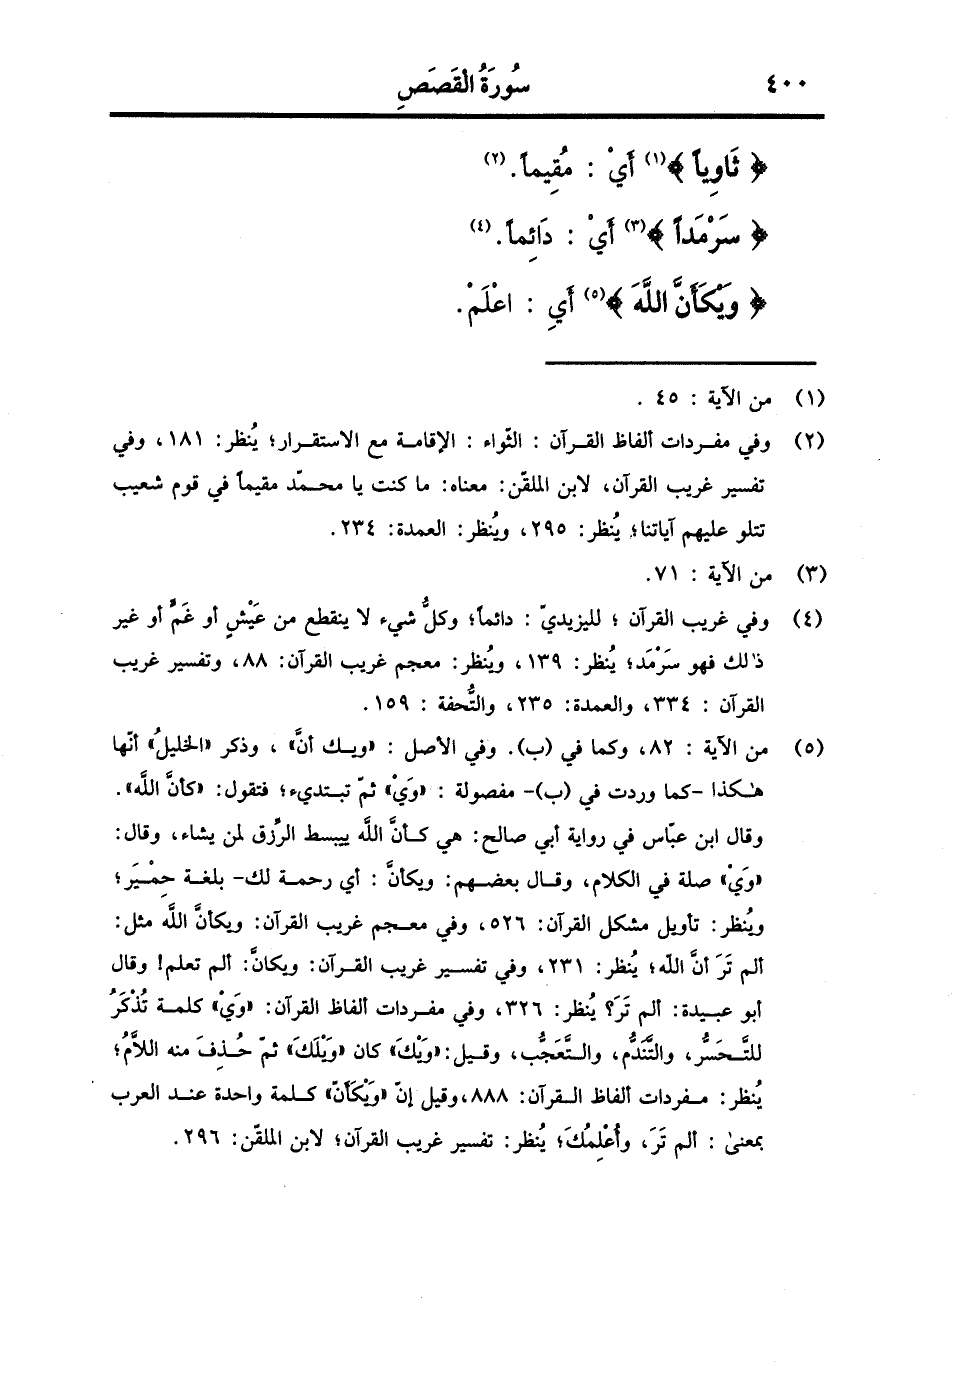 ٤٠٠
سُورَةُ الْقَصَصِ
﴿ ثَاوِياً ﴾(١) أَيْ : مُقِيماً.(٢)
﴿ سَرْمَداً ﴾(٣) أَيْ : دَائِماً.(٤)
﴿ وَيْكَأَنَّ اللَّهَ ﴾(٥) أَيِ : اعْلَمْ.
(١) من الآية : ٤٥ .
(٢) وفي مفـردات ألفاظ القـرآن : الثّواء : الإقامـة مع الاستقـرار؛ يُنظَر: ١٨١، وفي
تفسير غريب القرآن، لابن الملقّن: معناه: ما كنت يا محمـد مقيماً في قوم شعيب
تتلو عليهم آياتنا؛ يُنظَر: ٢٩٥، ويُنظَر: العمدة: ٢٣٤.
(٣) من الآية : ٧١.
(٤) وفي غريب القرآن ؛ لليزيديّ : دائماً؛ وكلُّ شيء لا ينقطع من عَيْشٍ أو غَمٍّ أو غير
ذٰلك فهو سَرْمَد؛ يُنظَر: ١٣٩، ويُنظَر: معجم غريب القرآن: ٨٨، وتفسير غريب
القرآن : ٣٣٤، والعمدة: ٢٣٥، والتُّحفة : ١٥٩.
(٥) من الآية : ٨٢، وكما في (ب). وفي الأصل : «ويـك أنَّ» ، وذكر «الخليلُ» أنّها
هٰـكذا -كما وردت في (ب)- مفصولة : «وَيْ» ثمّ تبـتديء؛ فتقول: «كأنَّ اللَّه».
وقال ابن عبّاس في رواية أبي صالح: هي كـأنَّ اللَّه يبسط الرِّزق لمن يشاء، وقال:
«وَيْ» صلة في الكلام، وقـال بعضـهم: ويكأنَّ : أي رحمـة لك- بلغـة حِمْيَر؛
ويُنظَر: تأويل مشكل القرآن: ٥٢٦، وفي معـجم غريب القرآن: ويكأنَّ اللَّه مثل:
ألم تَرَ أنَّ اللَّه؛ يُنظَر: ٢٣١، وفي تفسـير غريب القـرآن: ويكانَّ: ألم تعلم! وقال
أبو عبـيدة: ألم تَرَ؟ يُنظَر: ٣٢٦، وفي مفـردات ألفاظ القرآن: «وَيْ» كلمـة تُذْكَرُ
للتَّـحَسُّر، والتَّنَدُّم، والـتَّعَجُّب، وقـيل: «وَيْكَ» كان «وَيْلَكَ» ثمّ حُـذِفَ منه اللاَّمُ؛
يُنظَر: مـفردات ألفاظ الـقرآن: ٨٨٨،وقيل إنّ «وَيْكَأنّ» كـلمة واحدة عنـد العرب
بمعنىٰ : ألم تَرَ، وأُعْلِمُكَ؛ يُنظَر: تفسير غريب القرآن؛ لابن الملقّن: ٢٩٦.